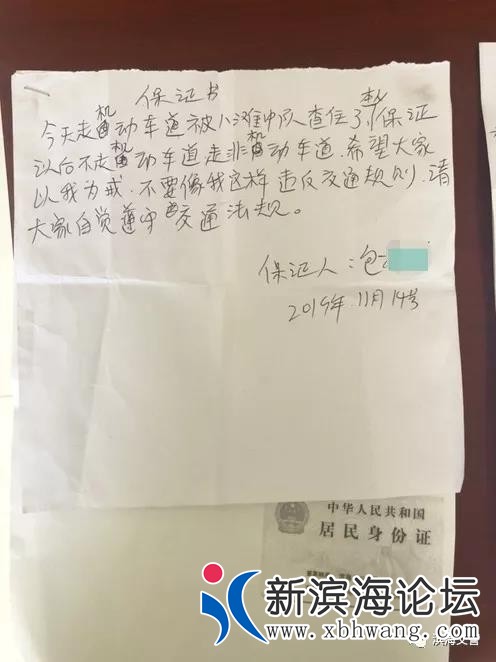 保证书
今天走机动车道被八滩中队查住了,本人保证
以后不走机动车道走非机动车道.希望大家
以我为戒.不要像我这样违反交通规则.请
大家自觉遵守交通法规。
保证人:包
2019年.11月14号
中华人民共和国
居民身份证
新滨海论坛
www.xbhwang.com
滨海交警